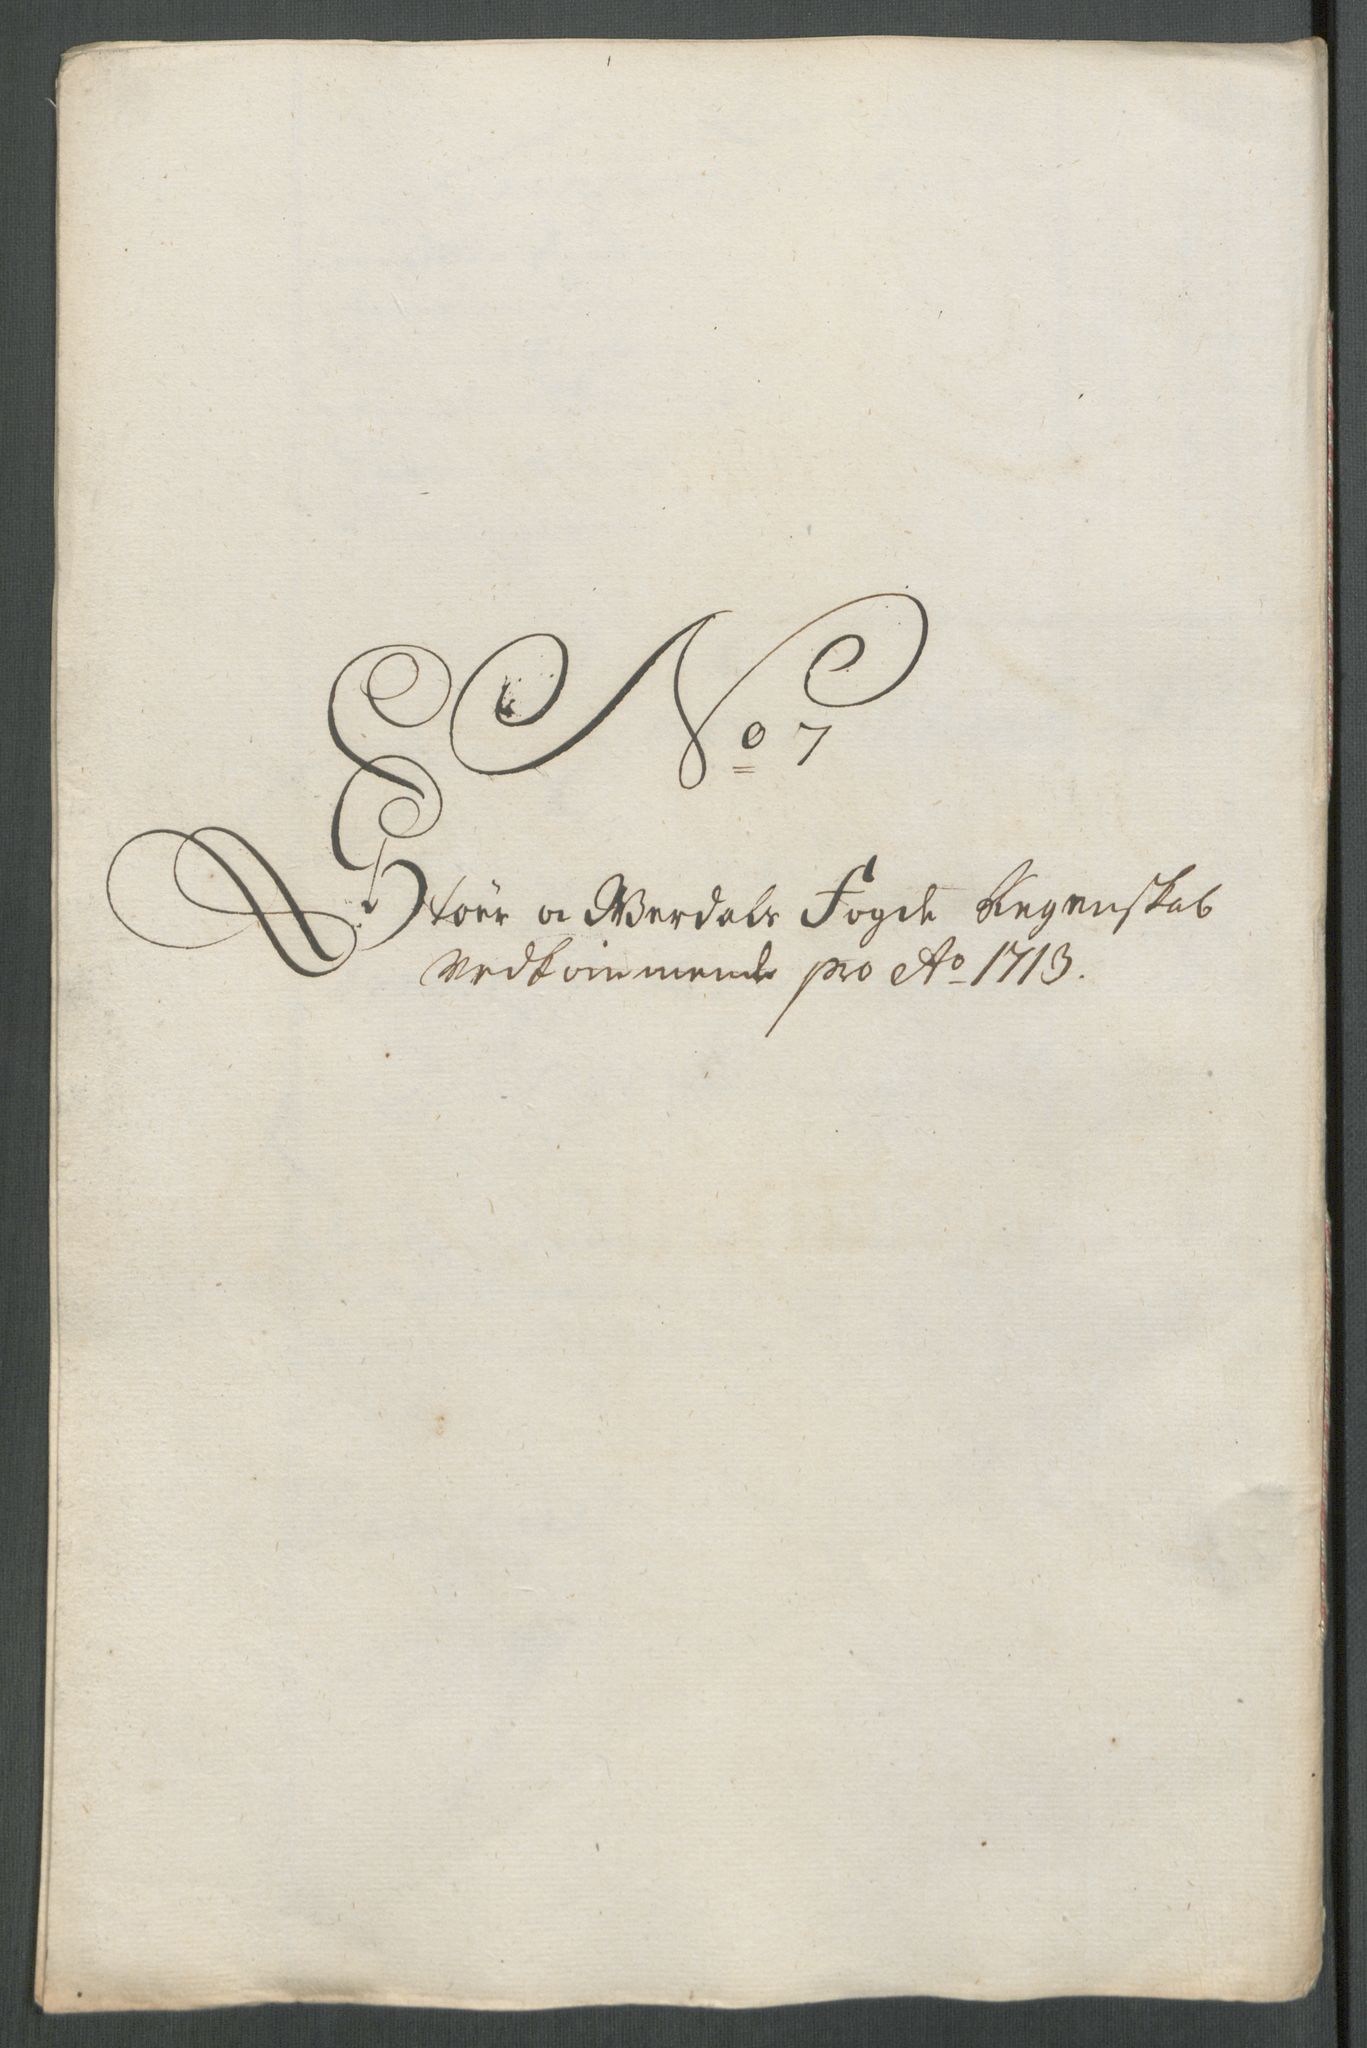 No 7
Støer og Werdals Fogde Regenskab
Vedkommende pro Ao 1713.